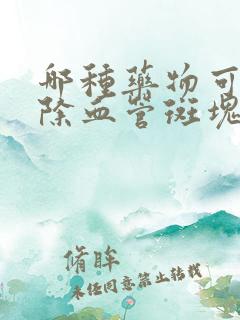 哪种药物可
除血管斑块
脩眸
未经同意禁止转载